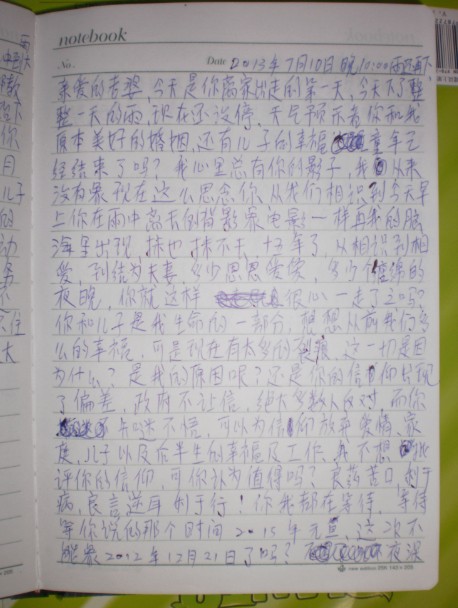 notebook
No.
Date 2013年7月10日晚10:00 雨还再下
亲爱的老婆,今天是你离家出走的第一天,今天下了整
整一天的雨,现在还没停,天气预示着你和我
原本美好的婚姻,还有儿子的幸福童年已
经结束了吗?我心里总有你的影子,我从来
没有象现在这么思念你,从我们相识到今天早
上你在雨中离去的背影象电影一样再我的脑
海里出现,抹也抹不去,十三年了,从相识到相
爱,到结为夫妻,多少恩恩爱爱,多少缠绵的
夜晚,你就这样狠心一走了之吗?
你和儿子是我生命的一部分,想想从前我们多
么的幸福,可是现在有太多的,这一切是因
为什么?是我的原因呢?还是你的信仰出现
了偏差,政府不让信,绝大多数人反对,而你
执迷不悟,可以为信仰放弃爱情、家
庭、儿子以及后半生的幸福及工作,我不想批
评你的信仰,可你认为值得吗?良药苦口利于
病,良言逆耳利于行!你我都在等待,等待
等你说的那个时间2015年元旦,这次不
能象2012年12月21日了吗?夜深